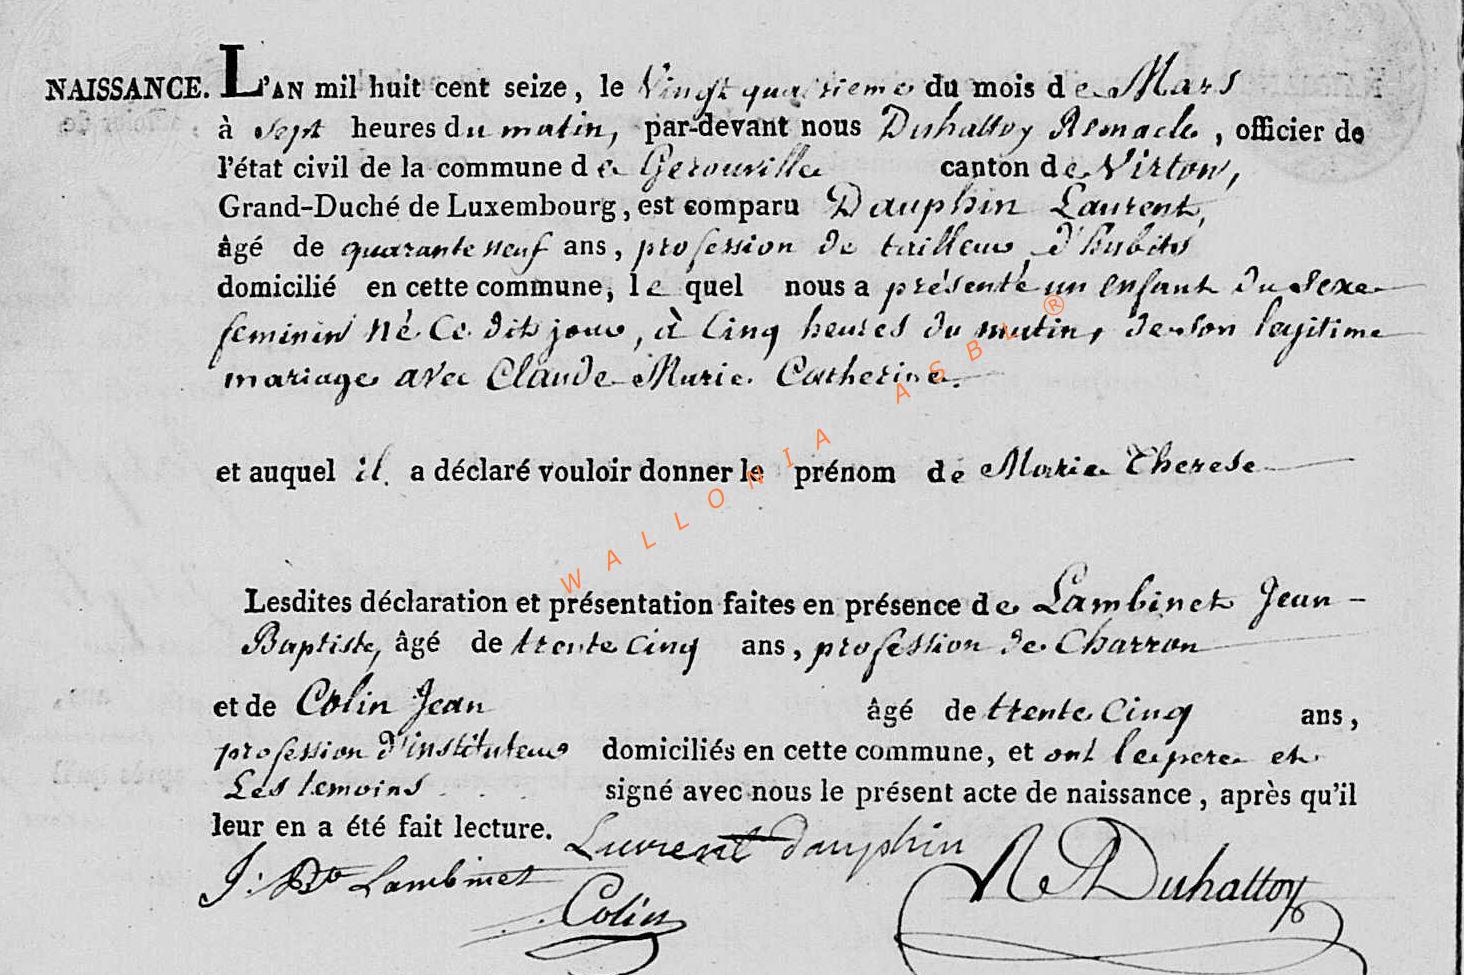 NAISSANCE. L'AN mil huit cent seize, le Vingt quatrieme du mois de Mars
à sept heures du matin, par-devant nous Duhattoy Remacle, officier de
l'état civil de la commune de Gerouville canton de Virton,
Grand-Duché de Luxembourg, est comparu Dauphin Laurent,
âgé de quarante neuf ans, profession de tailleur d'habits
domicilié en cette commune, le quel nous a présenté un enfant du sexe
feminin né ce dit jour, à cinq heures du matin, de son legitime
mariage avec Claude Marie Catherine.
et auquel il a déclaré vouloir donner le prénom de Marie Therese
Lesdites déclaration et présentation faites en présence de Lambinet Jean-
Baptiste, âgé de trente cinq ans, profession de Charron
et de Colin Jean âgé de trente cinq ans,
profession d'instituteur domiciliés en cette commune, et ont le pere et
Les temoins signé avec nous le présent acte de naissance, après qu'il
leur en a été fait lecture.
Laurent dauphin
J: Bte Lambinet
Colin
R Duhattoy
WALLONIA ASBL ®